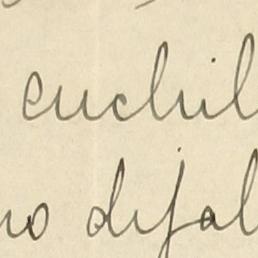 cuchil
no dejal